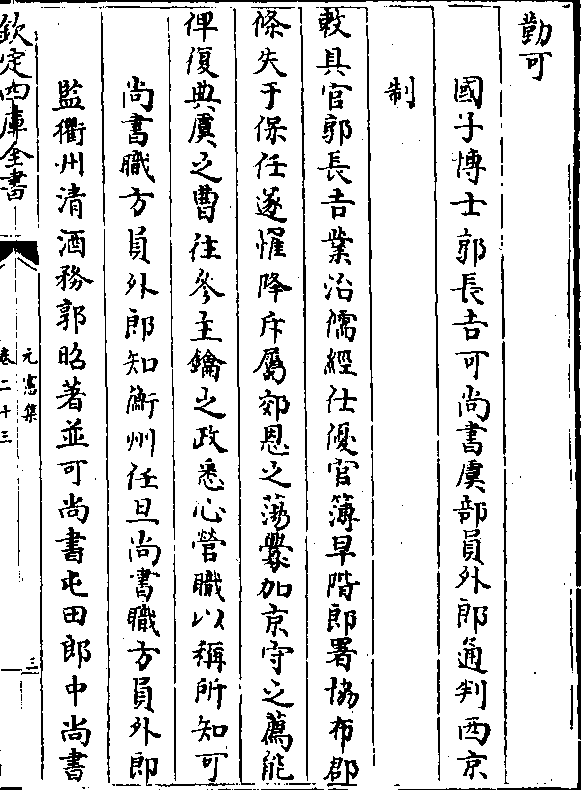 勤可
國子博士郭長吉可尚書虞部員外郎通判西京
制
敕具官郭長吉業治儒經仕優官簿早階郎署協布郡
條失于保任遂懼降斥屬郊恩之蕩釁加京守之薦能
俾復典虞之曹往參主鑰之政悉心營職以稱所知可
尚書職方員外郎知衡州任旦尚書職方員外郎
監衢州清酒務郭昭著並可尚書屯田郎中尚書
欽定四庫全書
元憲集
卷二十三
三